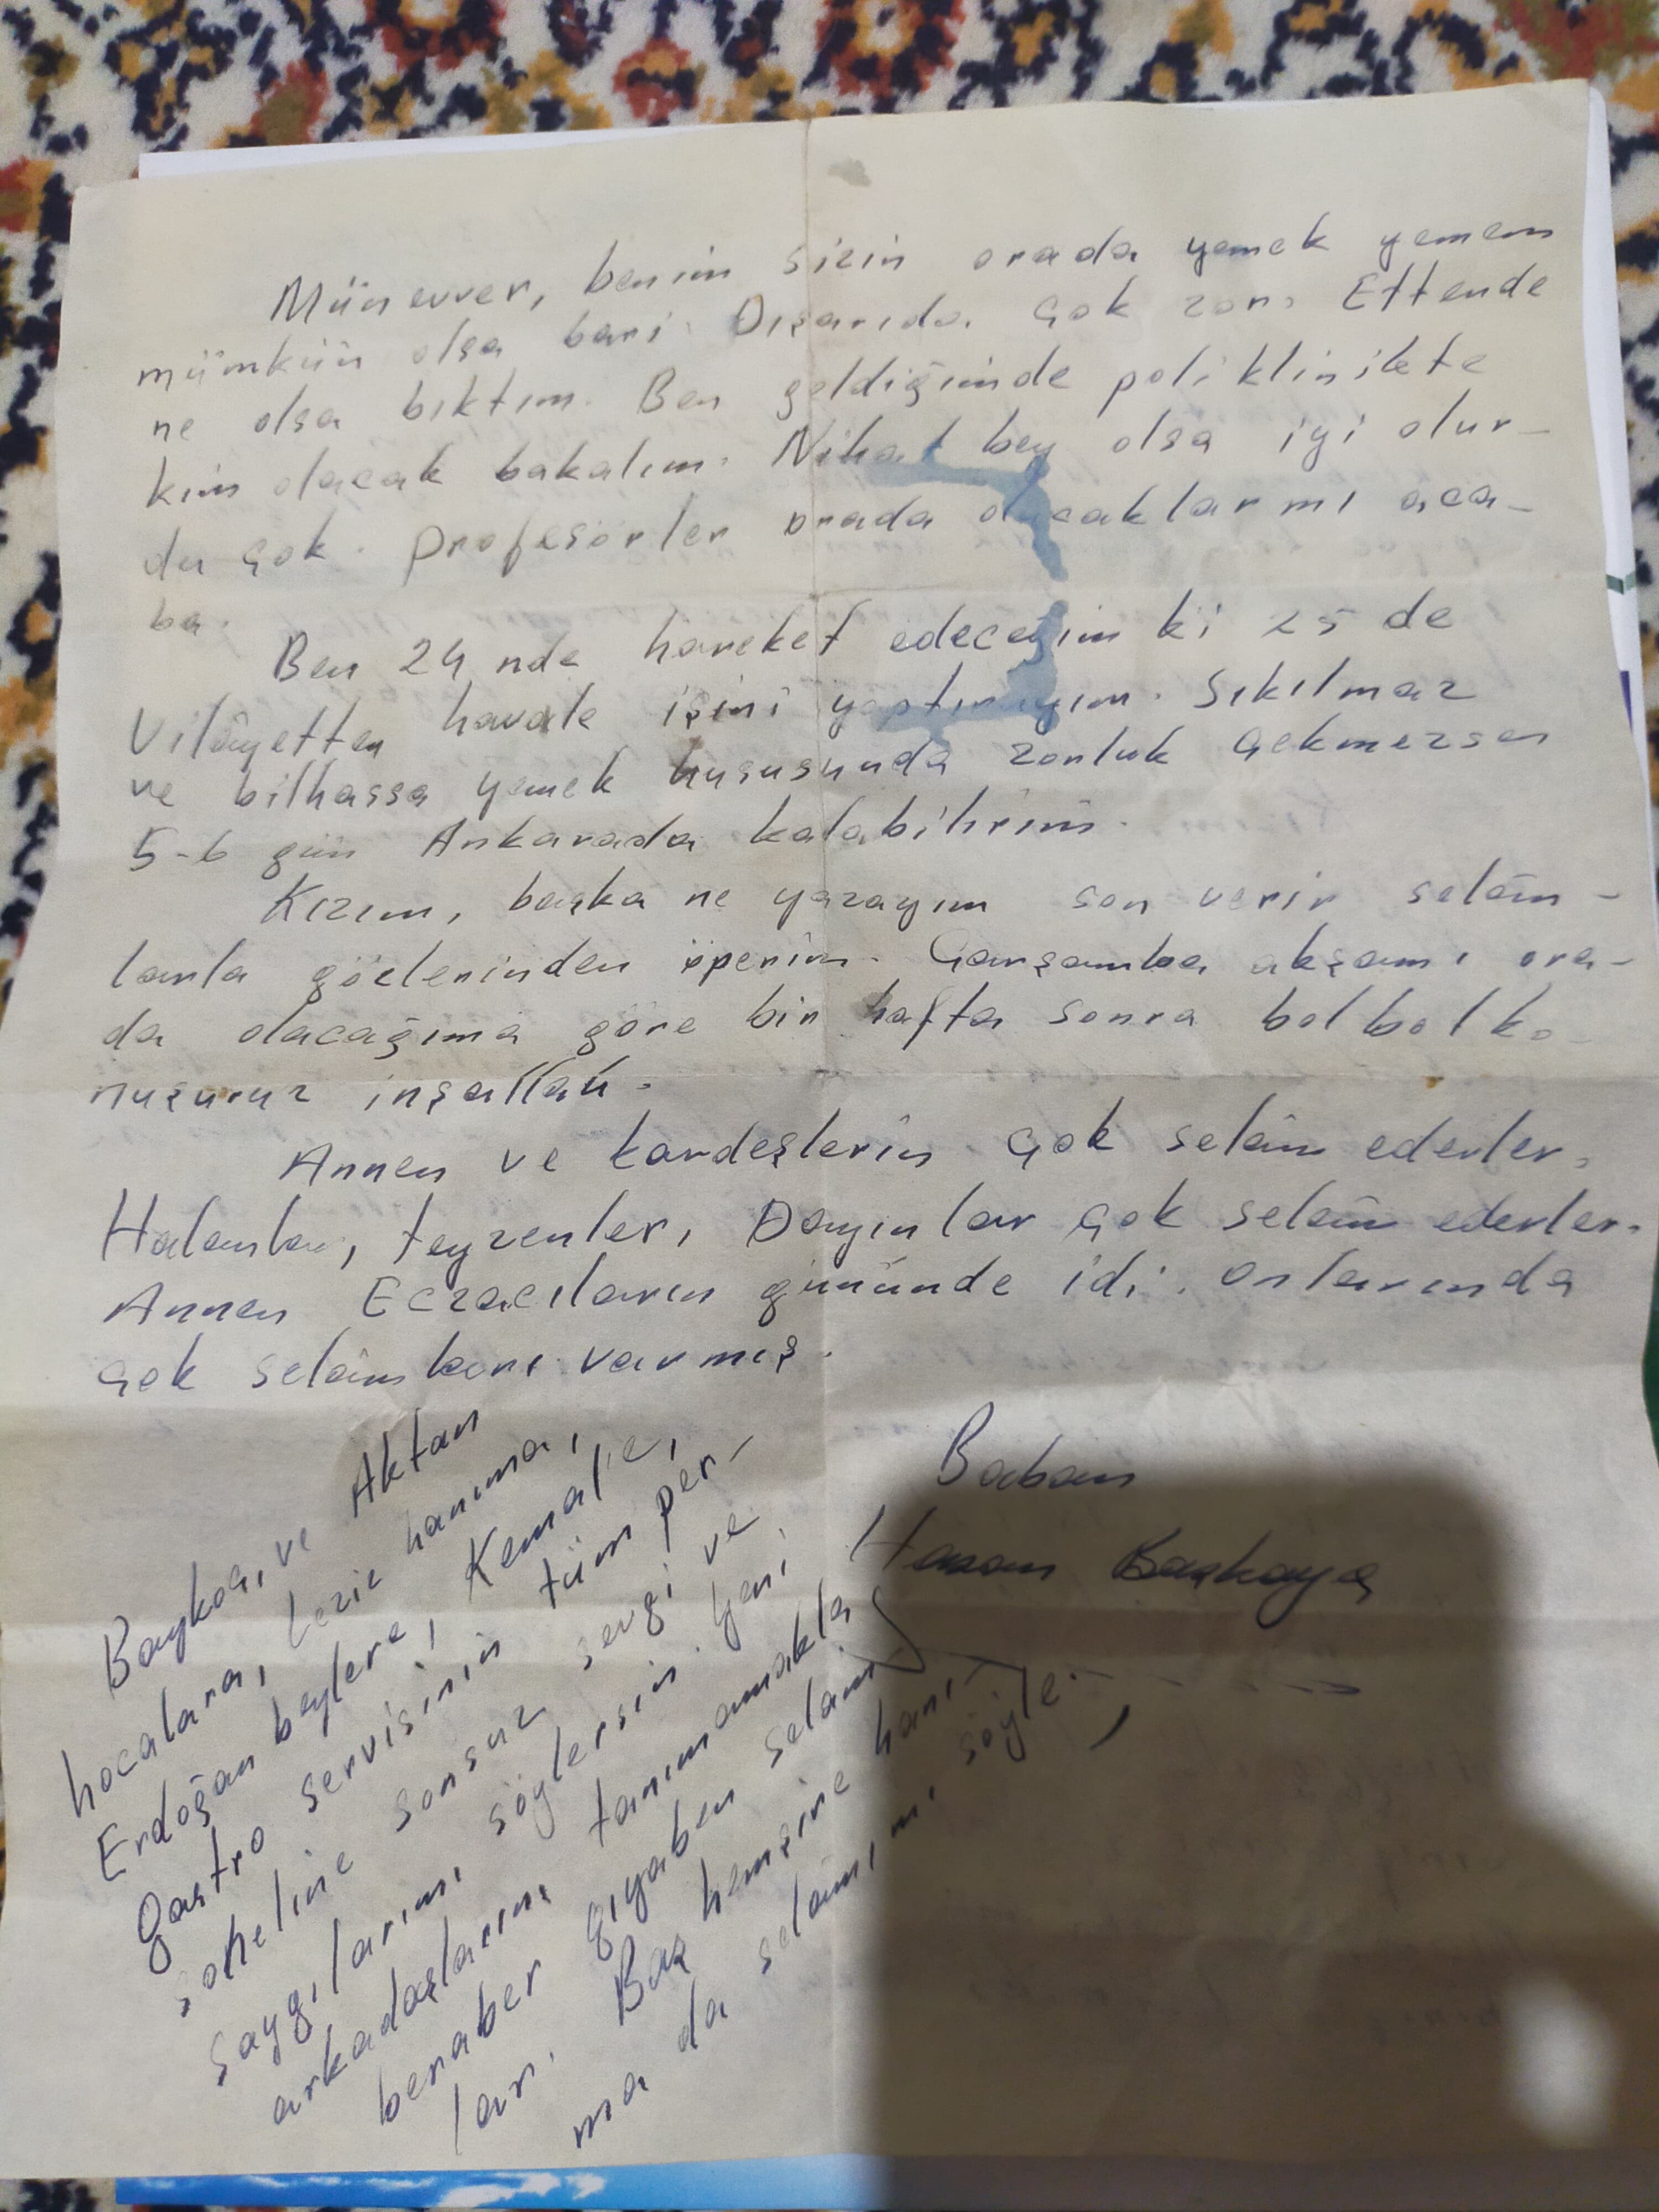 Münevver, benim sizin orada yemek yemem
mümkün olsa bari. Dışarıda çok zor. Ettende
ne olsa bıktım. Ben geldiğimde poliklinikte
kim olacak bakalım. Nihat bey olsa iyi olur-
du çok. Profesörler orada olacaklarmı aca-
ba.
Ben 24 nde hareket edeceğim ki 25 de
Vilâyetten havale işini yaptırayım. Sıkılmaz
ve bilhassa yemek hususunda zorluk çekmezsem
5-6 gün Ankarada kalabilirim.
Kızım, başka ne yazayım son verir selâm-
larla gözlerinden öperim. Çarşamba akşamı ora-
da olacağıma göre bir hafta sonra bol bol ko-
nuşuruz inşallah.
Annen ve kardeşlerin çok selâm ederler.
Halanlar, teyzenler, Dayınlar çok selâm ederler.
Annen Eczacıların gününde idi. Onlarında
çok selâmları varmış.
Baban
Hasan Başkaya
Baykoç, ve Aktan
hocalara, hanıma,
Erdoğan beylere, Kemal'e,
gastro servisinin tüm per-
soneline sonsuz sevgi ve
saygılarımı söylersin. Yeni
arkadaşlarını tanımamakla
beraber gıyaben selâm
lar. Baş hemşire hanı-
ma da selâmımı söyle.